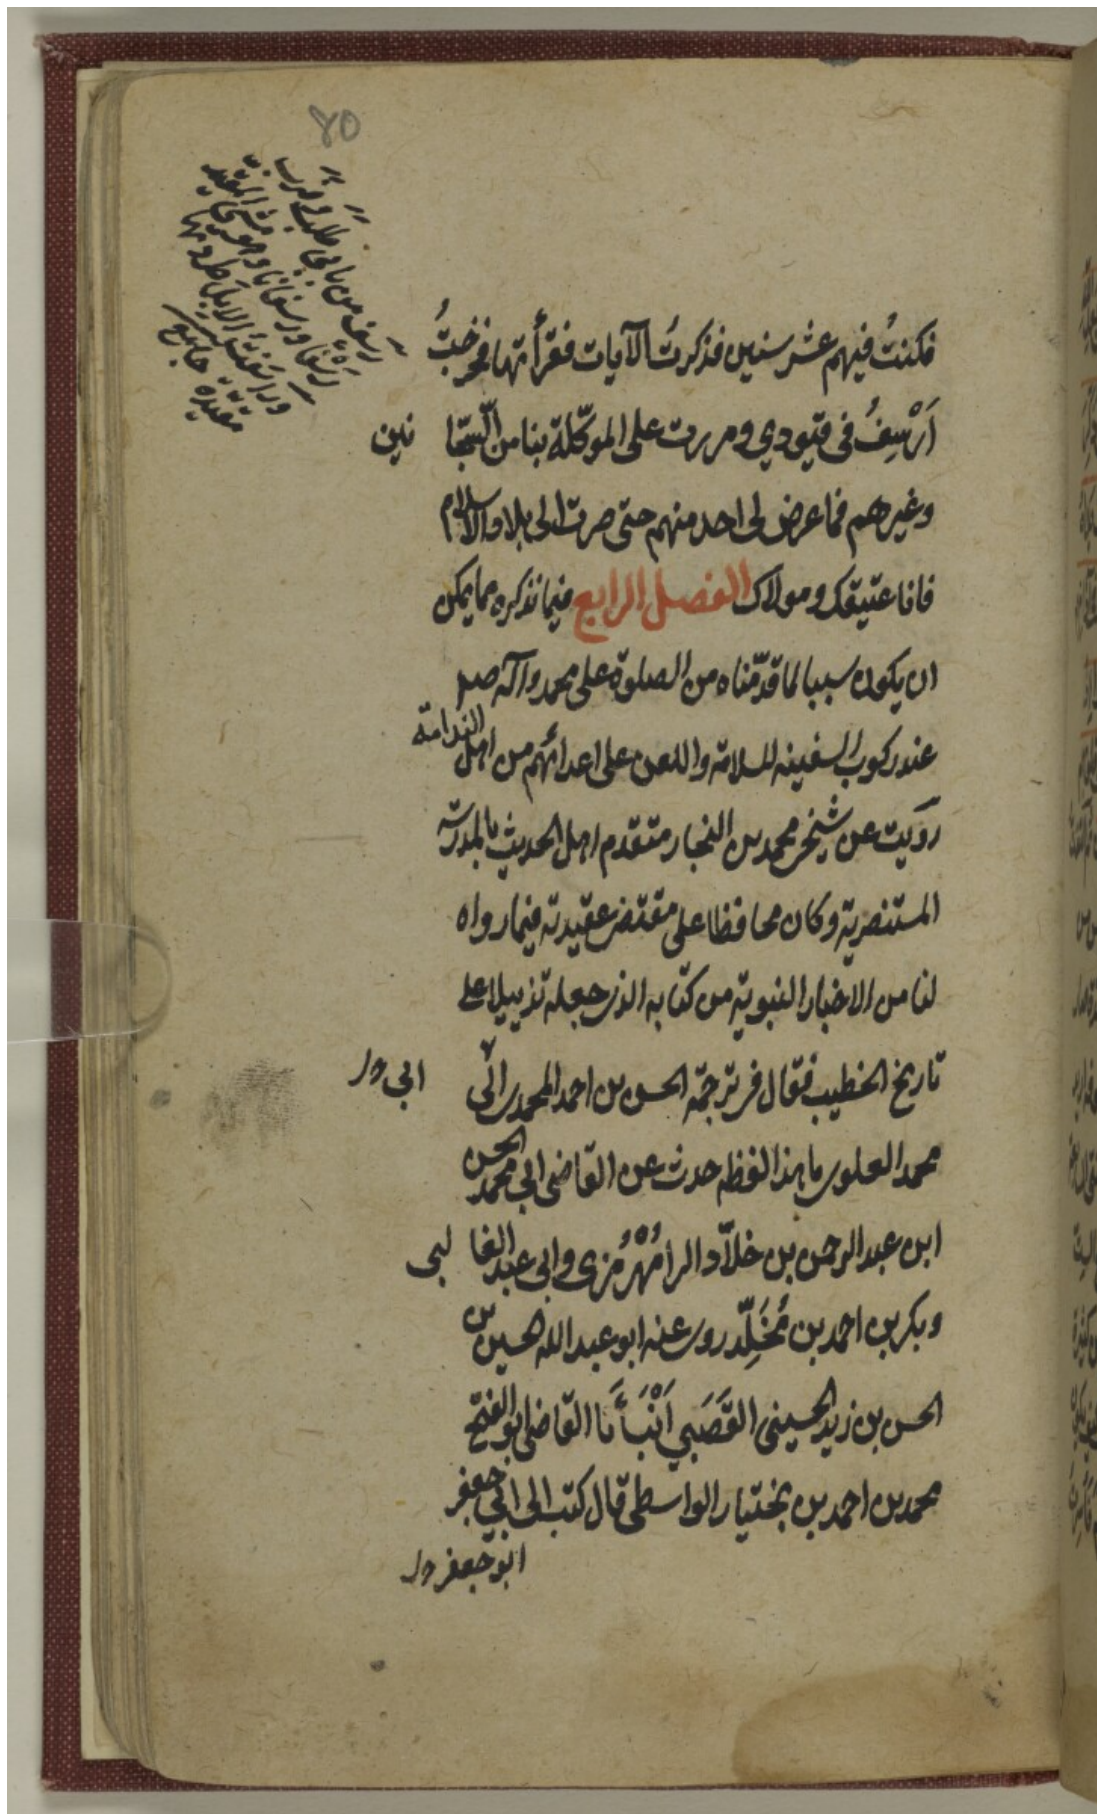 ٤٥
رَسَفَ من بابي طلب وضرب
رَسْفًا ورسفانا وهو مشي المقيد
ورسفت الابل طردتها
مقيدة جامع
فكنتُ فيهم عشر سنين فذكرتُ الآيات فقرأتها فخرجتُ
اَرْسِفُ فى قيودي ومررت على الموكّلة بنا من السّجّانين
وغيرهم فما عرض لى احد منهم حتى صرت الى بلاد الاسلام
فانا عتيقك ومولاك الفصل الرابع فيما نذكره مما يمكن
ان يكون سببا لما قدّمناه من الصلوة على محمد وآله صلم
عند ركوب السفينه للسلامة واللعن على اعدائهم من اهل الندامة
رَوَيت عن شيخى محمد بن النجار متقدم اهل الحديث بالمدرسة
المستنصرية وكان محافظا على مقتضى عقيدته فيما رواه
لنا من الاخبار النبوية من كتابه الذى جعله تذييلا على
تاريخ الخطيب فقال فى ترجمة الحسن بن احمد المحمدى الى
ابى ور
محمد العلوى ما هذا لفظه حدث عن القاضى ابى محمد الحسن
ابن عبد الرحمن بن خلاّد الرامُهْرُمُزى وابى عبد الغالبى
وبكر بن احمد بن مُخَلِّد روى عنه ابو عبد الله الحسين بن
الحسن بن زيد الحسينى القَصَبي اَنْبَأَنَا القاضى ابو الفتح
محمد بن احمد بن بختيار الواسطى قال كتب الى ابى جعفر
ابو جعفر ور